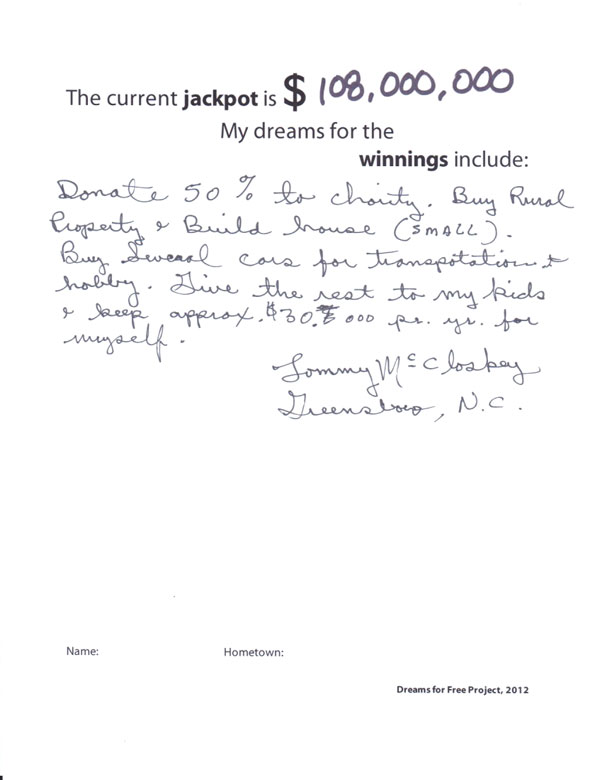 The current jackpot is $ 108,000,000
My dreams for the
winnings include:
Donate 50 % to charity. Buy Rural
Property & Build house (SMALL).
Buy Several cars for transpotation &
hobby. Give the rest to my kids
& keep approx. $30, 000 pr. yr. for
myself.
Tommy McCloskey
Greensboro, N.C.
Name: Hometown:
Dreams for Free Project, 2012